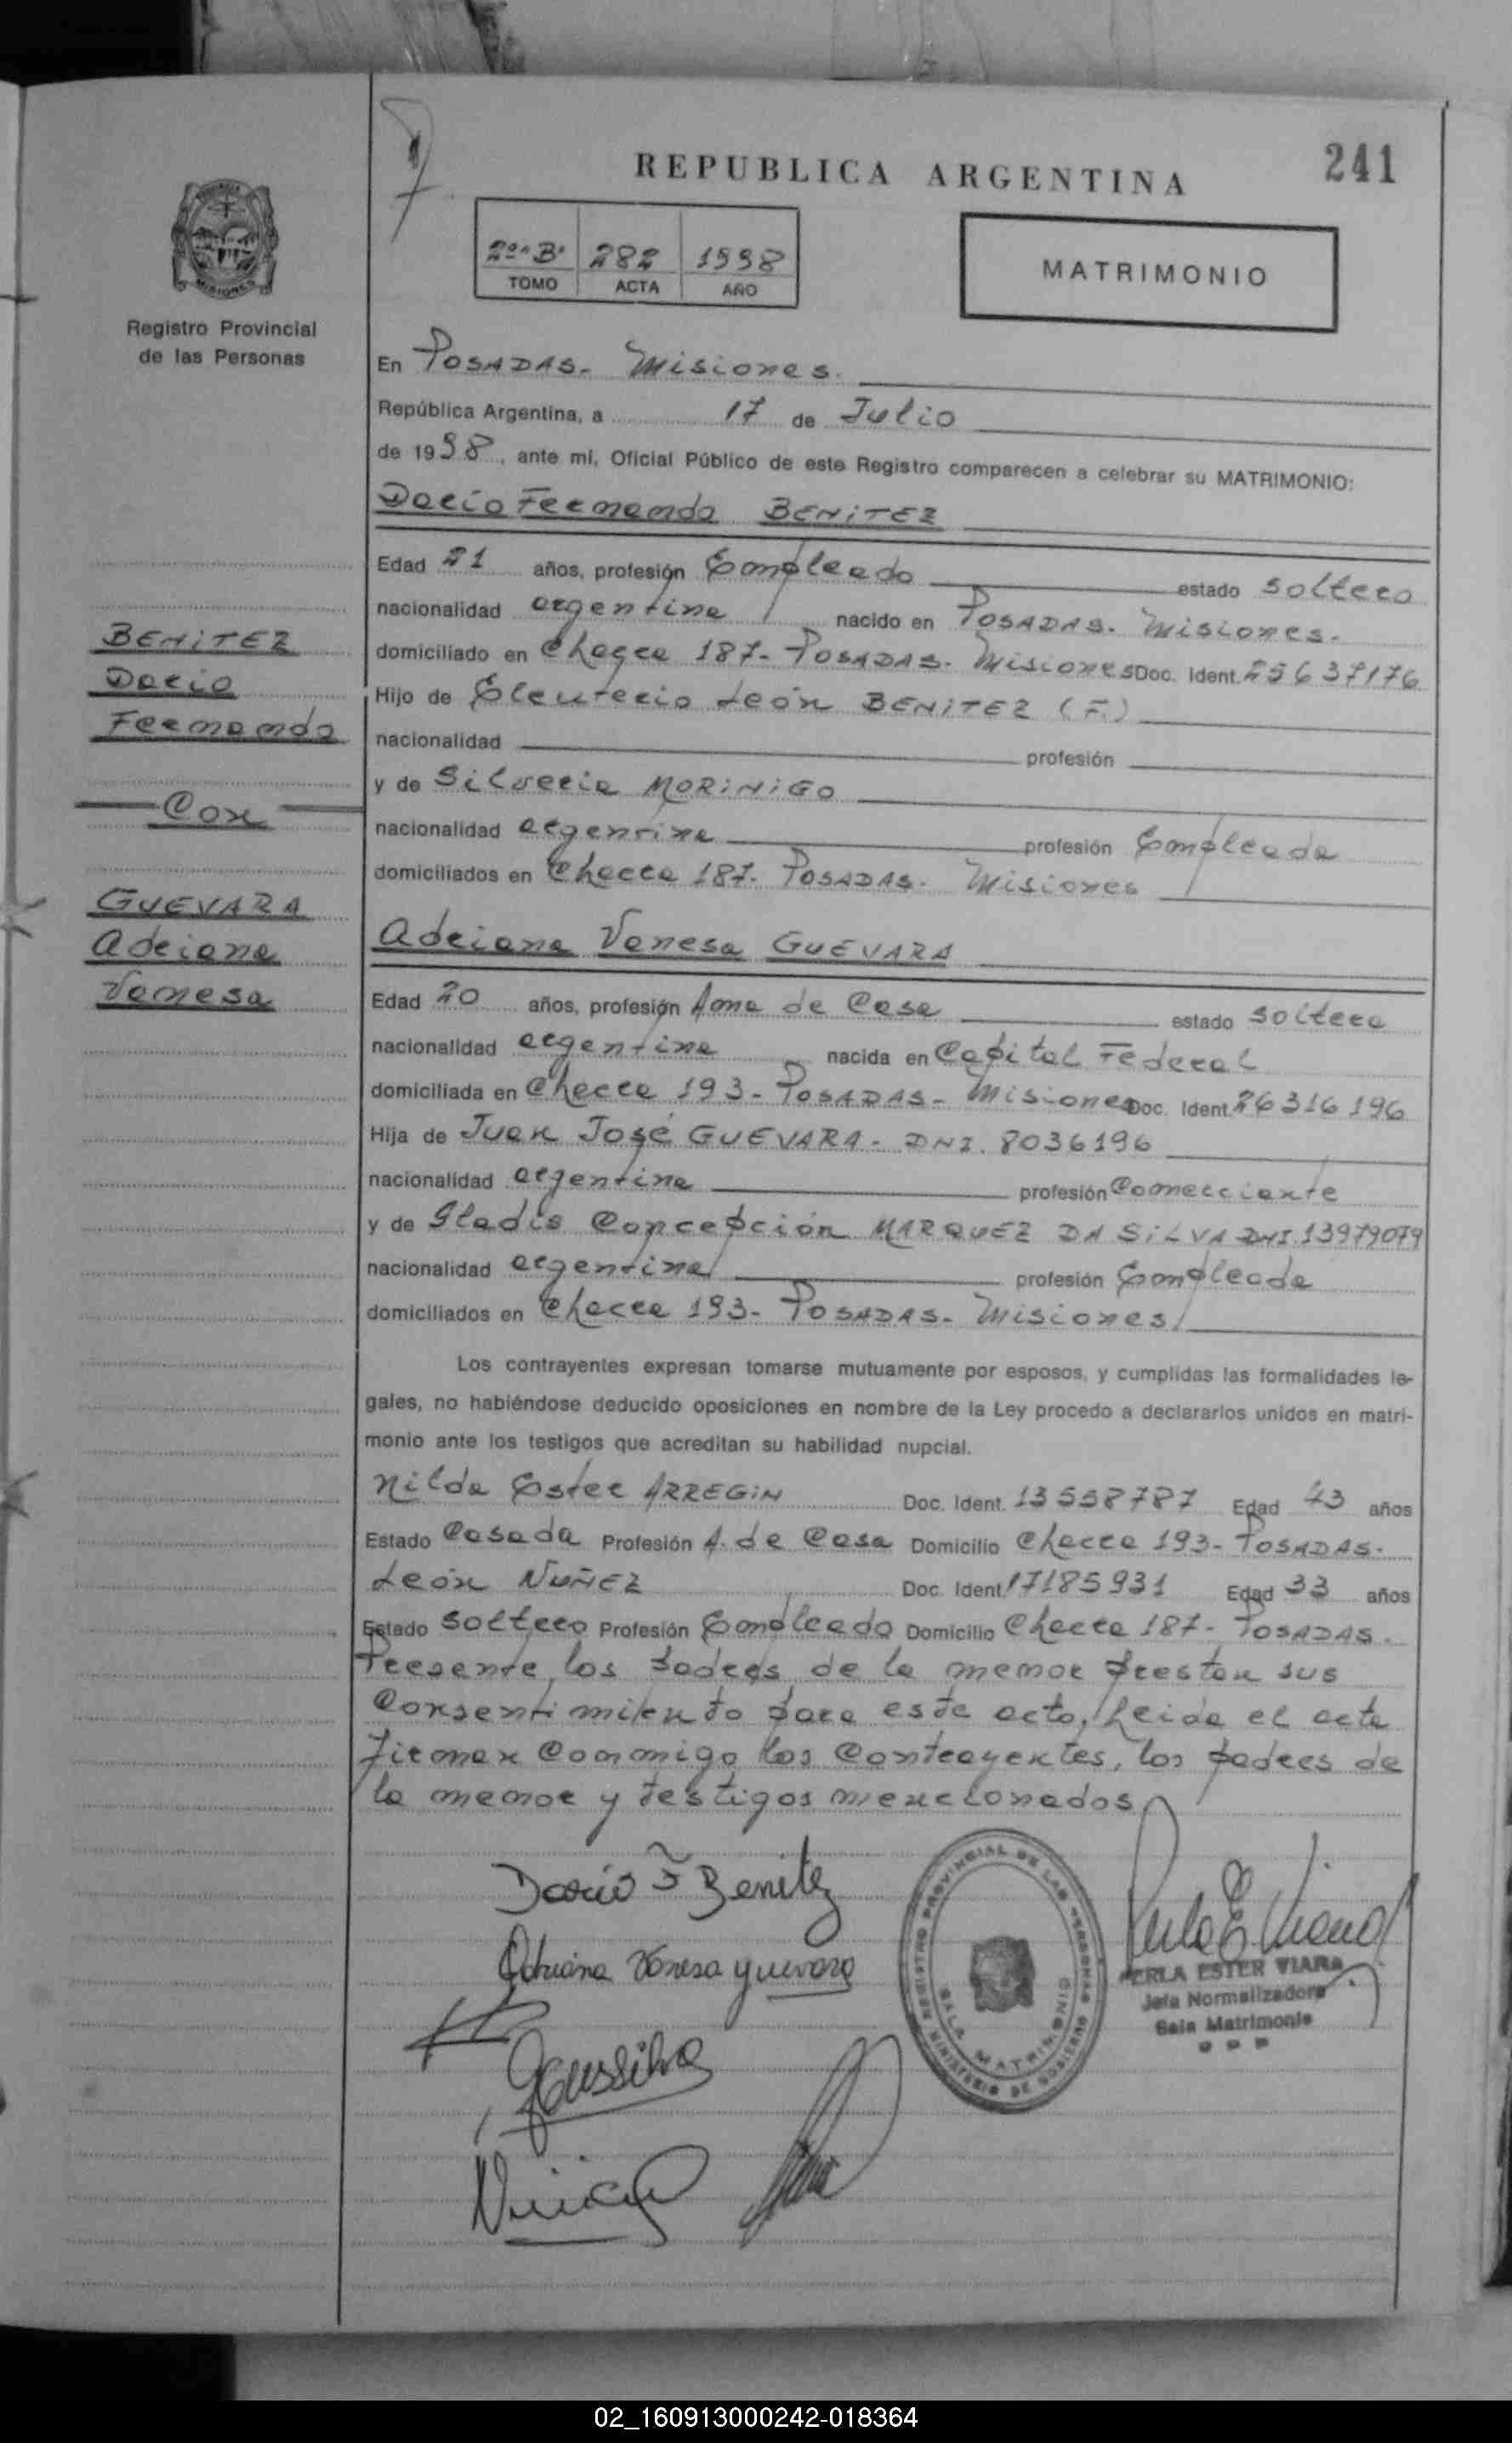 241
REPUBLICA ARGENTINA
2º "B" 282 1998
TOMO ACTA AÑO
MATRIMONIO
Registro Provincial
de las Personas
En POSADAS - Misiones.
República Argentina, a 17 de Julio
de 1998, ante mí, Oficial Público de este Registro comparecen a celebrar su MATRIMONIO:
Dario Fernando BENITEZ
Edad 21 años, profesión Empleado estado soltero
nacionalidad argentina nacido en POSADAS - Misiones.
domiciliado en Chacra 187 - POSADAS - Misiones Doc. Ident. 25637176
Hijo de Eleuterio León BENITEZ (F.)
nacionalidad profesión
y de Silveria MORINIGO
nacionalidad argentina profesión Empleada
domiciliados en Chacra 187 - POSADAS - Misiones
BENITEZ
Dario
Fernando
Con
GUEVARA
Adriana
Vanesa
Adriana Vanesa GUEVARA
Edad 20 años, profesión Ama de Casa estado soltera
nacionalidad argentina nacida en Capital Federal
domiciliada en Chacra 193 - POSADAS - Misiones Doc. Ident. 26316196
Hija de Juan José GUEVARA - DNI. 8036196
nacionalidad argentina profesión Comerciante
y de Gladis Concepción MARQUEZ DA SILVA DNI. 13979079
nacionalidad argentina profesión Empleada
domiciliados en Chacra 193 - POSADAS - Misiones
Los contrayentes expresan tomarse mutuamente por esposos, y cumplidas las formalidades le-
gales, no habiéndose deducido oposiciones en nombre de la Ley procedo a declararlos unidos en matri-
monio ante los testigos que acreditan su habilidad nupcial.
Nilda Ester ARREGIN Doc. Ident. 13558787 Edad 43 años
Estado Casada Profesión A. de Casa Domicilio Chacra 193 - POSADAS -
León NUÑEZ Doc. Ident. 17185931 Edad 33 años
Estado soltero Profesión Empleado Domicilio Chacra 187 - POSADAS -
Presente los padres de la menor prestan sus
Consentimiento para este acto, leida el acta
firman Conmigo los Contrayentes, los padres de
la menor y testigos mencionados
Dario F Benitez
Adriana Vanesa Guevara
REGISTRO PROVINCIAL DE LAS PERSONAS
MINISTERIO DE GOBIERNO
SALA MATRIMONIO
PERLA ESTER VIARA
Jefa Normalizadora
Sala Matrimonio
02_160913000242-018364